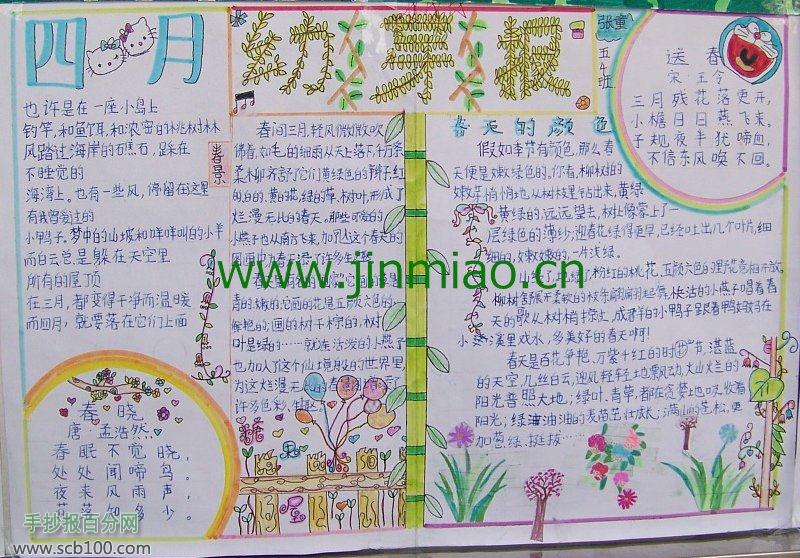 四月
幼芽报
张童
五4班
也许是在一座小岛上
钓竿,和鱼饵,和浓密的桃树林
风踏过海岸的石焦石,踩在
不睡觉的
海湾上。也有一些风,停留在这里
有我曾爱过的
小鸭子。梦中的山坡和咩咩叫的小羊
而白云总是躲在天空里
所有的屋顶
在三月,都变得干净而温暖
而四月,就要落在它们上面
春晓
唐 孟浩然
春眠不觉晓,
处处闻啼鸟。
夜来风雨声,
花落知多少。
春景
春间三月,轻风微微吹
拂着,如毛的细雨从天上落下,千万条
柔柳齐舒了它们黄绿色的
的白的、黄的花,绿的草,树叶,形成了
烂漫无比的春天。那些可爱的
小燕子也从南方飞来,加入这个春天的
图画中,为春天
着的,嫩的;它画的花是五颜六色的,
艳的;画的树千榜的,树
叶是绿的……就连活泼的小燕子
也加入了这个仙境般的世界里,
为这烂漫无
许多色彩、生趣。
春天的颜色
假如季节有颜色,那么春
天便是嫩绿色的,你看,柳树的
嫩芽悄悄地从树枝里钻出来,黄绿
黄绿的,远远望去,树上像蒙上了一
层绿色的薄纱;迎春花绿得更早,已经吐出几个叶片,细
细的,嫩嫩的,一片浅绿。
粉红的桃花,五颜六色的野花竞相开放,
柳树舒展开柔软的枝条翩翩起舞,长法的小燕子唱着春
天的歌从树梢掠过,成群的小鸭子呈跟着鸭妈妈在
小溪里戏水,多美好的春天啊!
春天是百花争艳,万紫千红的时节,湛蓝
的天空,几丝白云,迎风轻轻地飘动,火灿灿的
阳光普照大地;绿叶,青草,都在贪婪地吸收着
阳光;绿油油的麦苗茁壮成长;满山的苍松,更
加葱绿、挺拔……
送春
宋·王令
三月残花落更开,
小檐日日燕飞来。
子规夜半犹啼血,
不信东风唤不回。
www.jinmiao.cn
手抄报百分网
www.scb100.com